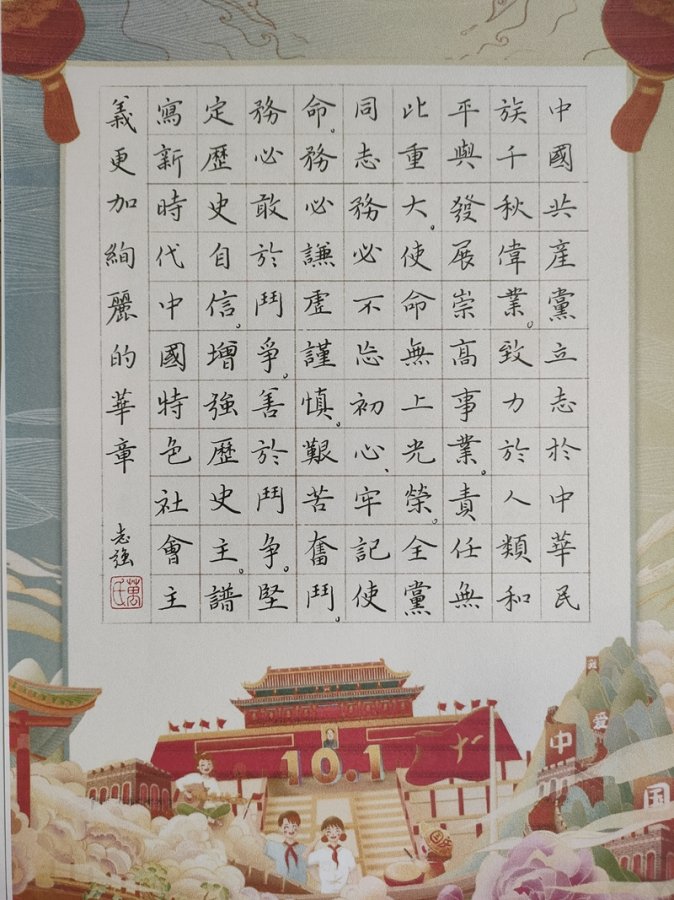 中國共產黨立志於中華民
族千秋偉業。致力於人類和
平與發展崇高事業。責任無
此重大。使命無上光榮。全黨
同志務必不忘初心、牢記使
命。務必謙虛謹慎。艱苦奮鬥。
務必敢於鬥爭。善於鬥爭。堅
定歷史自信。增強歷史主。譜
寫新時代中國特色社會主
義更加絢麗的華章
志強
萬氏
10.1
十一
我
爱
中
国